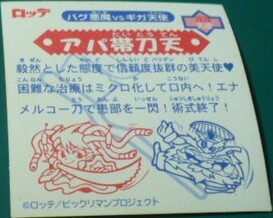 ロッテ
バグ悪魔VSギガ天使
アバ帯刀天
毅然とした態度で信頼度抜群の美天使♥
困難な治療はミクロ化して口内へ！エナ
メルコー刀で患部を一閃！術式終了！
©ロッテ/ビックリマンプロジェクト